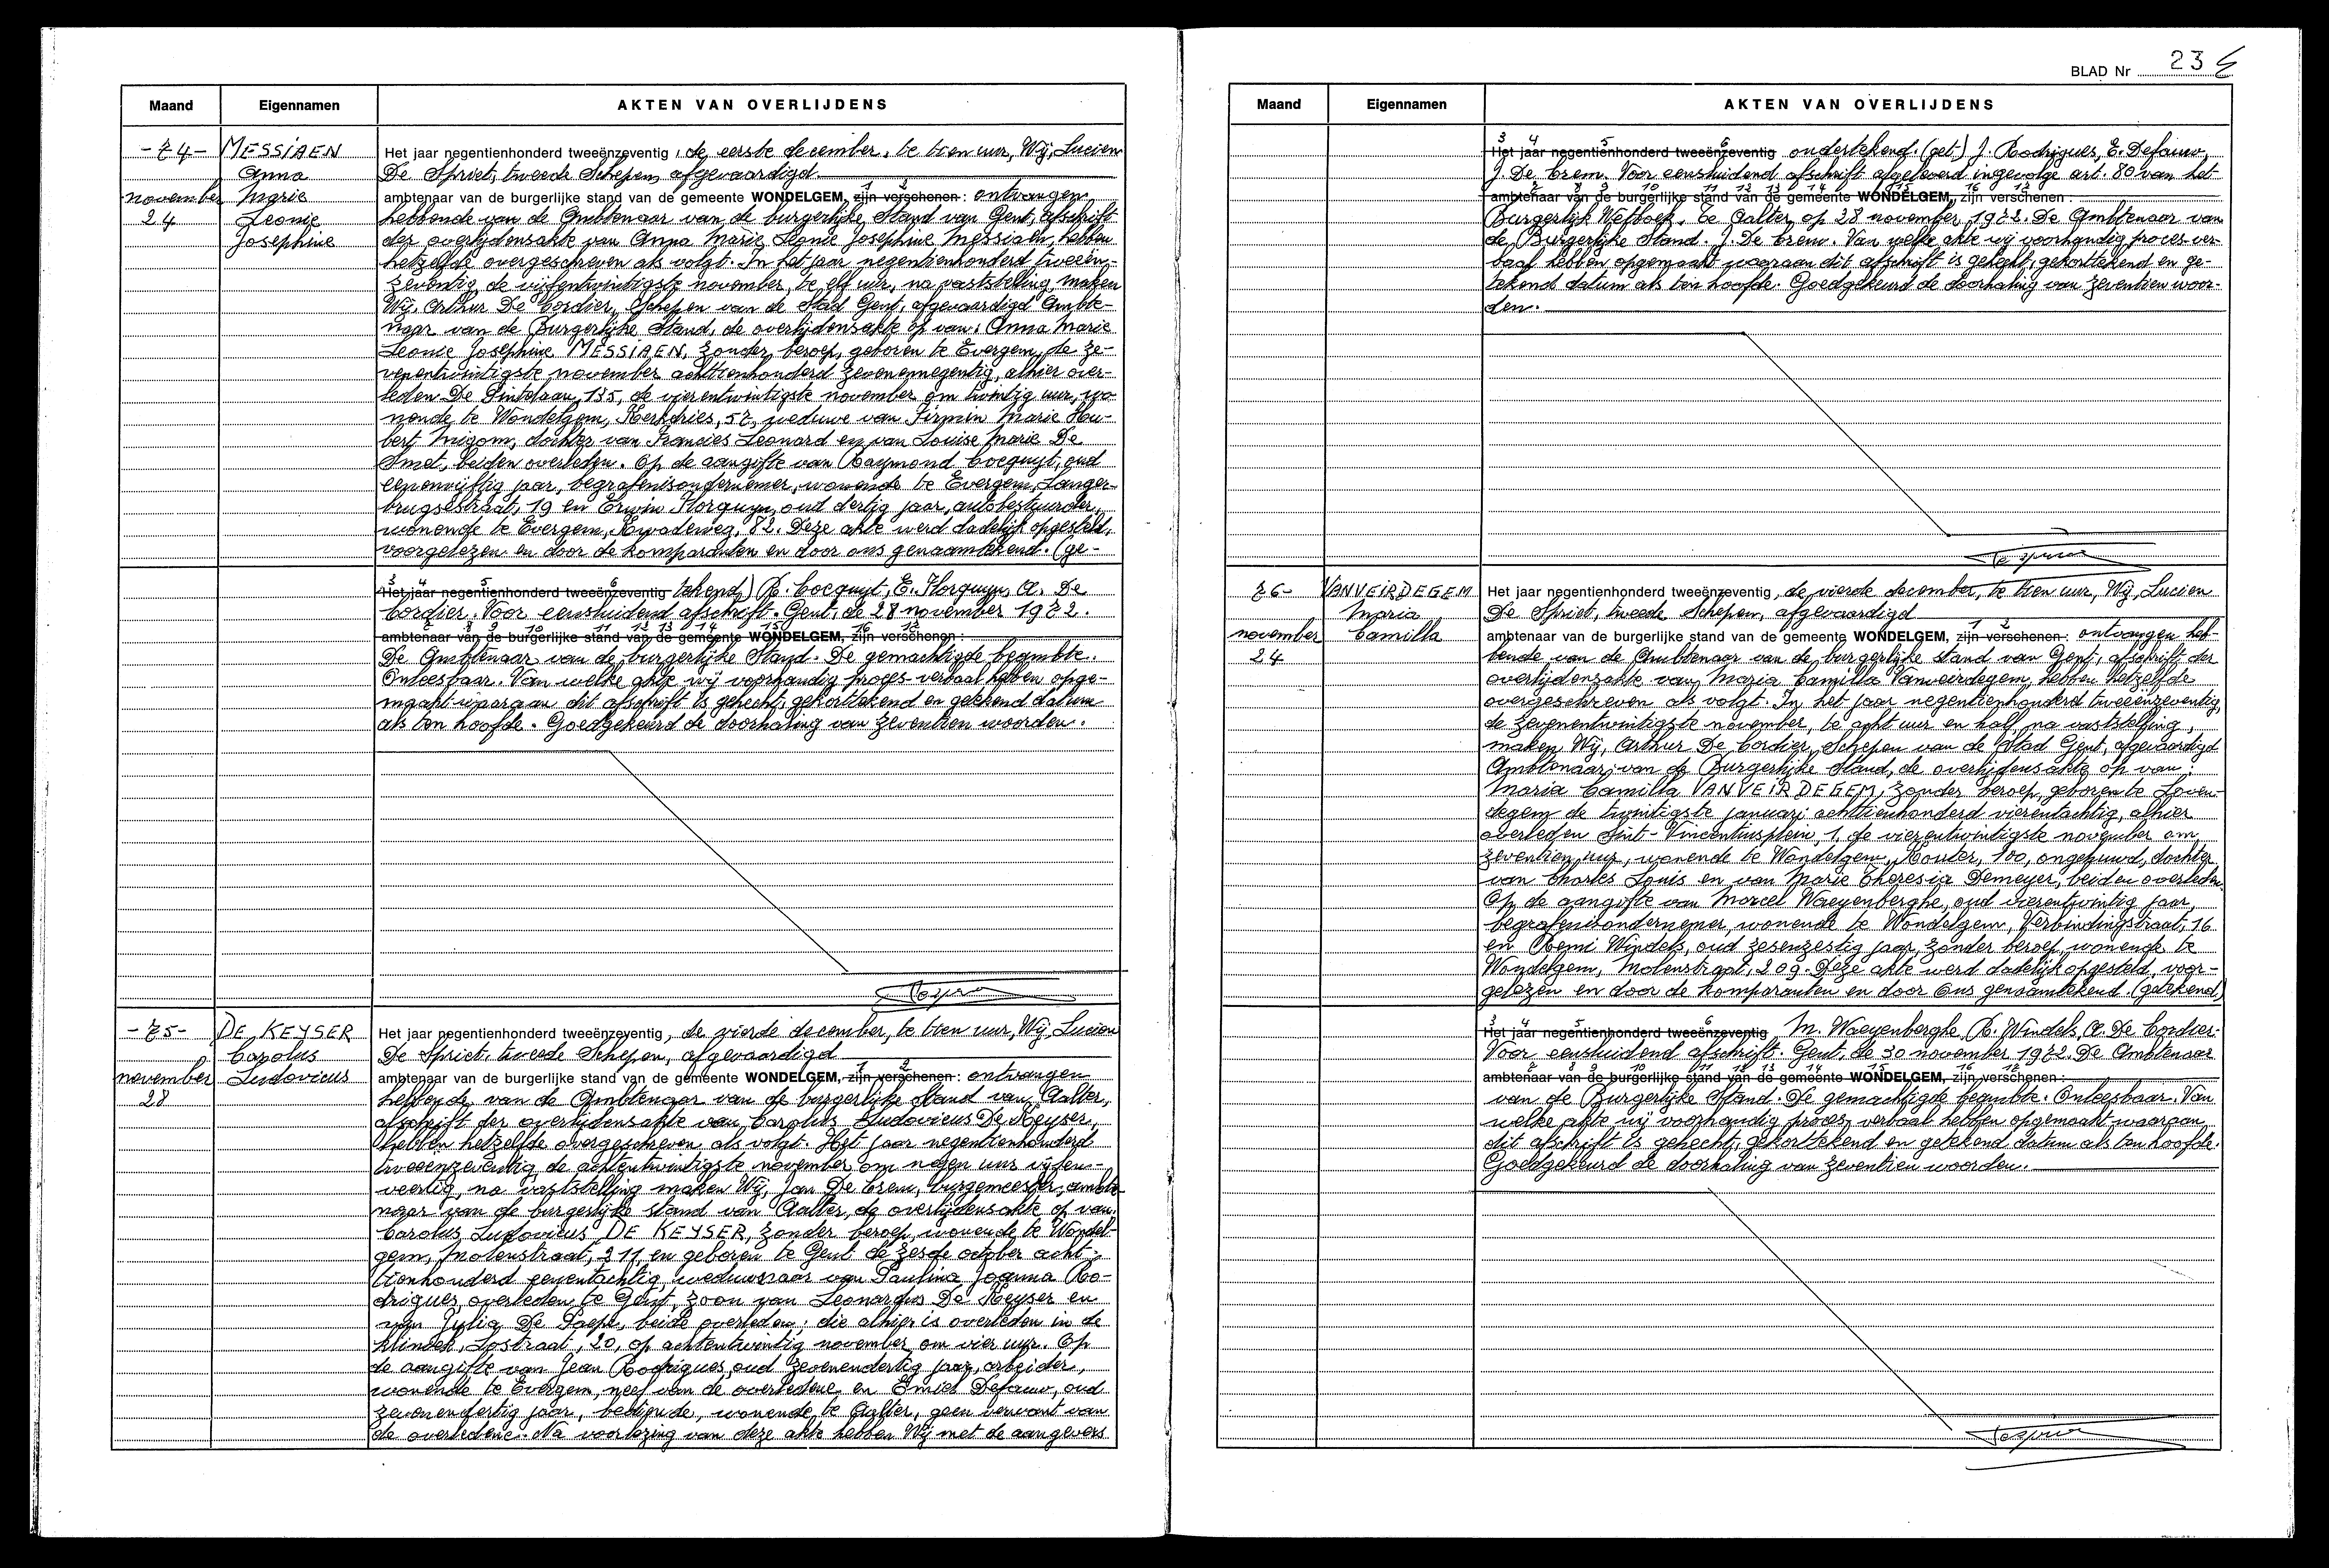 Maand Eigennamen AKTEN VAN OVERLIJDENS
-74- MESSIAEN
Anna
november Marie
24 Leonie
Josephine
Het jaar negentienhonderd tweeënzeventig, de eerste december, te tien uur, Wij, Lucien
De Spriet, tweede Schepen, afgevaardigd
ambtenaar van de burgerlijke stand van de gemeente WONDELGEM, zijn verschenen : ontvangen
hebbende van de Ambtenaar van de burgerlijke Stand van Gent, afschrift
der overlijdensakte van Anna Marie Leonie Josephine Messiaen, hebben
hetzelfde overgeschreven als volgt. In het jaar negentienhonderd tweeen-
zeventig, de vijfentwintigste november, te elf uur, na vaststelling, maken
Wij, Arthur De Cordier, Schepen van de Stad Gent, afgevaardigd Ambte-
naar van de Burgerlijke Stand, de overlijdensakte op van: Anna Marie
Leonie Josephine MESSIAEN, zonder beroep, geboren te Evergem, de ze-
venentwintigste november achttienhonderd zevenennegentig, alhier over-
leden De Pintelaan, 135, de vierentwintigste november om twintig uur, wo-
nende te Wondelgem, Kerkdries, 57, weduwe van Firmin Marie Hu-
bert Migom, dochter van Francies Leonard en van Louise Marie De
Smet, beiden overleden. Op de aangifte van Raymond Cocquyt, oud
eenenvijftig jaar, begrafenisondernemer, wonende te Evergem, Langer-
brugsestraat, 19 en Erwin Florquyn, oud dertig jaar, autobestuurder,
wonende te Evergem, Kwadeweg, 82. Deze akte werd dadelijk opgesteld,
voorgelezen en door de komparanten en door ons genaamtekend. (ge-
3 4 5 6
Het jaar negentienhonderd tweeënzeventig tekend) R. Cocquyt, E. Florquyn, A. De
Cordier. Voor eensluidend afschrift. Gent, de 28 november 1972.
ambtenaar van de burgerlijke stand van de gemeente WONDELGEM, zijn verschenen :
De Ambtenaar van de burgerlijke Stand. De gemachtigde beambte.
Onleesbaar. Van welke akte wij voorhandig proces-verbaal hebben opge-
maakt waaraan dit afschrift is gehecht, gekorttekend en getekend datum
als ten hoofde. Goedgekeurd de doorhaling van zeventien woorden.
-75- DE KEYSER
Carolus
november Ludovicus
28
Het jaar negentienhonderd tweeënzeventig, de vierde december, te tien uur, Wij, Lucien
De Spriet, tweede Schepen, afgevaardigd
ambtenaar van de burgerlijke stand van de gemeente WONDELGEM, zijn verschenen : ontvangen
hebbende van de Ambtenaar van de burgerlijke stand van Aalter,
afschrift der overlijdensakte van Carolus Ludovicus De Keyser,
hebben hetzelfde overgeschreven als volgt. Het jaar negentienhonderd
tweeenzeventig de achtentwintigste november om negen uur vijfen-
veertig, na vaststelling maken Wij, Jan De Crem, burgemeester, ambte-
naar van de burgerlijke stand van Aalter, de overlijdensakte op van:
Carolus Ludovicus DE KEYSER, zonder beroep, wonende te Wondel-
gem, Molenstraat, 211, en geboren te Gent de zesde october acht-
tienhonderd eenentachtig, weduwnaar van Paulina Joanna Ro-
drigues, overleden te Gent, zoon van Leonardus De Keyser en
van Julia De Paepe, beide overleden; die alhier is overleden in de
kliniek, Lostraat, 20, op achtentwintig november om vier uur. Op
de aangifte van Jean Rodrigues, oud zevenendertig jaar, arbeider,
wonende te Evergem, neef van de overledene en Emiel Defauw, oud
zevenendertig jaar, bediende, wonende te Aalter, geen verwant van
de overledene. Na voorlezing van deze akte hebben Wij met de aangevers
BLAD Nr 236
Maand Eigennamen AKTEN VAN OVERLIJDENS
3 4 5 6
Het jaar negentienhonderd tweeënzeventig ondertekend. (get.) J. Rodrigues, E. Defauw,
J. De Crem. Voor eensluidend afschrift afgeleverd ingevolge art. 80 van het
ambtenaar van de burgerlijke stand van de gemeente WONDELGEM, zijn verschenen :
Burgerlijk Wetboek. Te Aalter, op 28 november 1972. De Ambtenaar van
de Burgerlijke Stand. J. De Crem. Van welke akte wij voorhandig proces-ver-
baal hebben opgemaakt waaraan dit afschrift is gehecht, gekorttekend en ge-
tekend datum als ten hoofde. Goedgekeurd de doorhaling van zeventien woor-
den.
76- VANVEIRDEGEM
Maria
november Camilla
24
Het jaar negentienhonderd tweeënzeventig, de vierde december, te tien uur, Wij, Lucien
De Spriet, tweede Schepen, afgevaardigd
ambtenaar van de burgerlijke stand van de gemeente WONDELGEM, zijn verschenen : ontvangen heb-
bende van de Ambtenaar van de burgerlijke stand van Gent, afschrift der
overlijdensakte van Maria Camilla Vanveirdegem, hebben hetzelfde
overgeschreven als volgt. In het jaar negentienhonderd tweeenzeventig,
de zevenentwintigste november, te acht uur en half, na vaststelling,
maken Wij, Arthur De Cordier, Schepen van de Stad Gent, afgevaardigd
Ambtenaar van de Burgerlijke Stand, de overlijdensakte op van:
Maria Camilla VANVEIRDEGEM, zonder beroep, geboren te Loven-
degem de twintigste januari achttienhonderd vierentachtig, alhier
overleden Sint-Vincentiusplein, 1, de vierentwintigste november om
zeventien uur, wonende te Wondelgem, Kouter, 100, ongehuwd, dochter
van Charles Louis en van Marie Theresia Demeyer, beiden overleden.
Op de aangifte van Marcel Waeyenberghe, oud vierentwintig jaar,
begrafenisondernemer, wonende te Wondelgem, Verbindingstraat, 16
en Remi Windels, oud zesenzestig jaar, zonder beroep, wonende te
Wondelgem, Molenstraat, 209. Deze akte werd dadelijk opgesteld, voor-
gelezen en door de komparanten en door Ons genaamtekend. (getekend)
3 4 5 6
Het jaar negentienhonderd tweeënzeventig M. Waeyenberghe, R. Windels, A. De Cordier.
Voor eensluidend afschrift. Gent, de 30 november 1972. De Ambtenaar
ambtenaar van de burgerlijke stand van de gemeente WONDELGEM, zijn verschenen :
van de Burgerlijke Stand. De gemachtigde beambte. Onleesbaar. Van
welke akte wij voorhandig proces-verbaal hebben opgemaakt waaraan
dit afschrift is gehecht, gekortekend en getekend datum als ten hoofde.
Goedgekeurd de doorhaling van zeventien woorden.